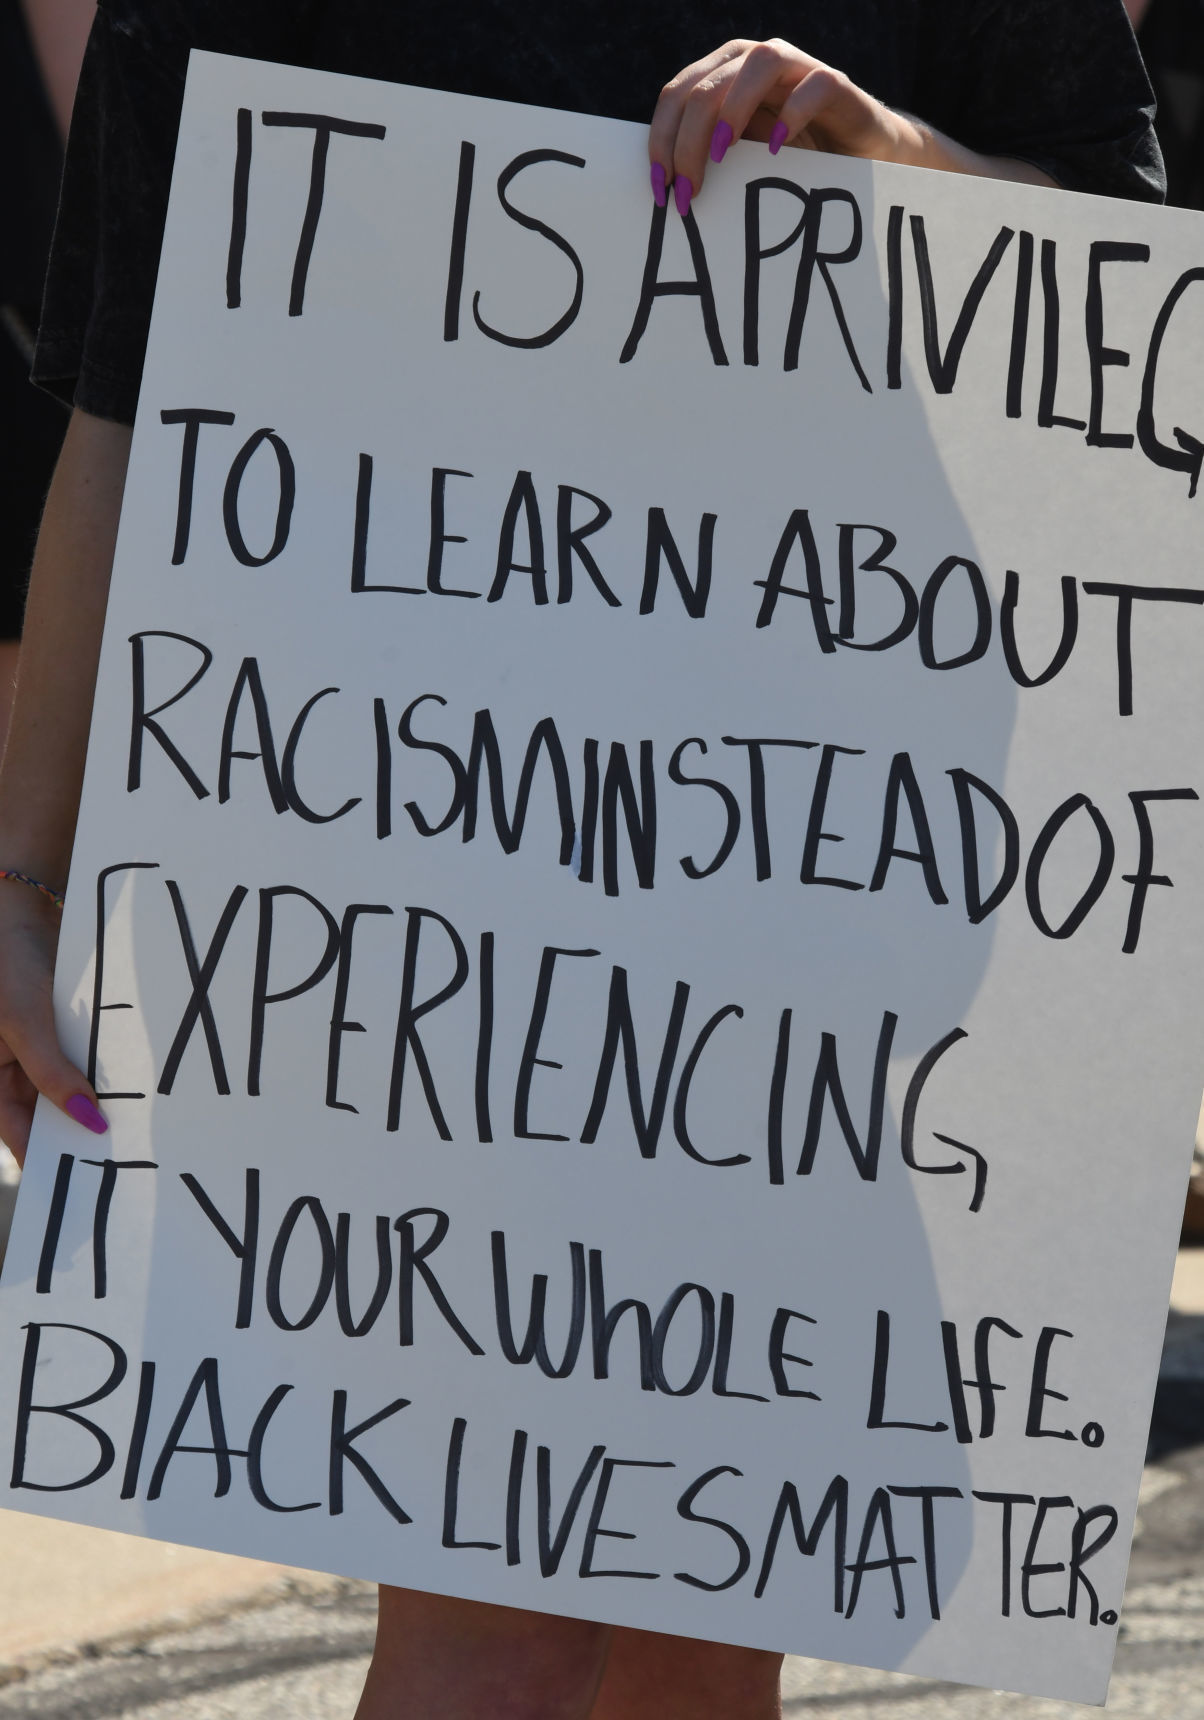 IT IS A PRIVILEG
TO LEARN ABOUT
RACISM INSTEAD OF
EXPERIENCING
IT YOUR WhOLE LIFE.
BlACK LIVES MATTER.